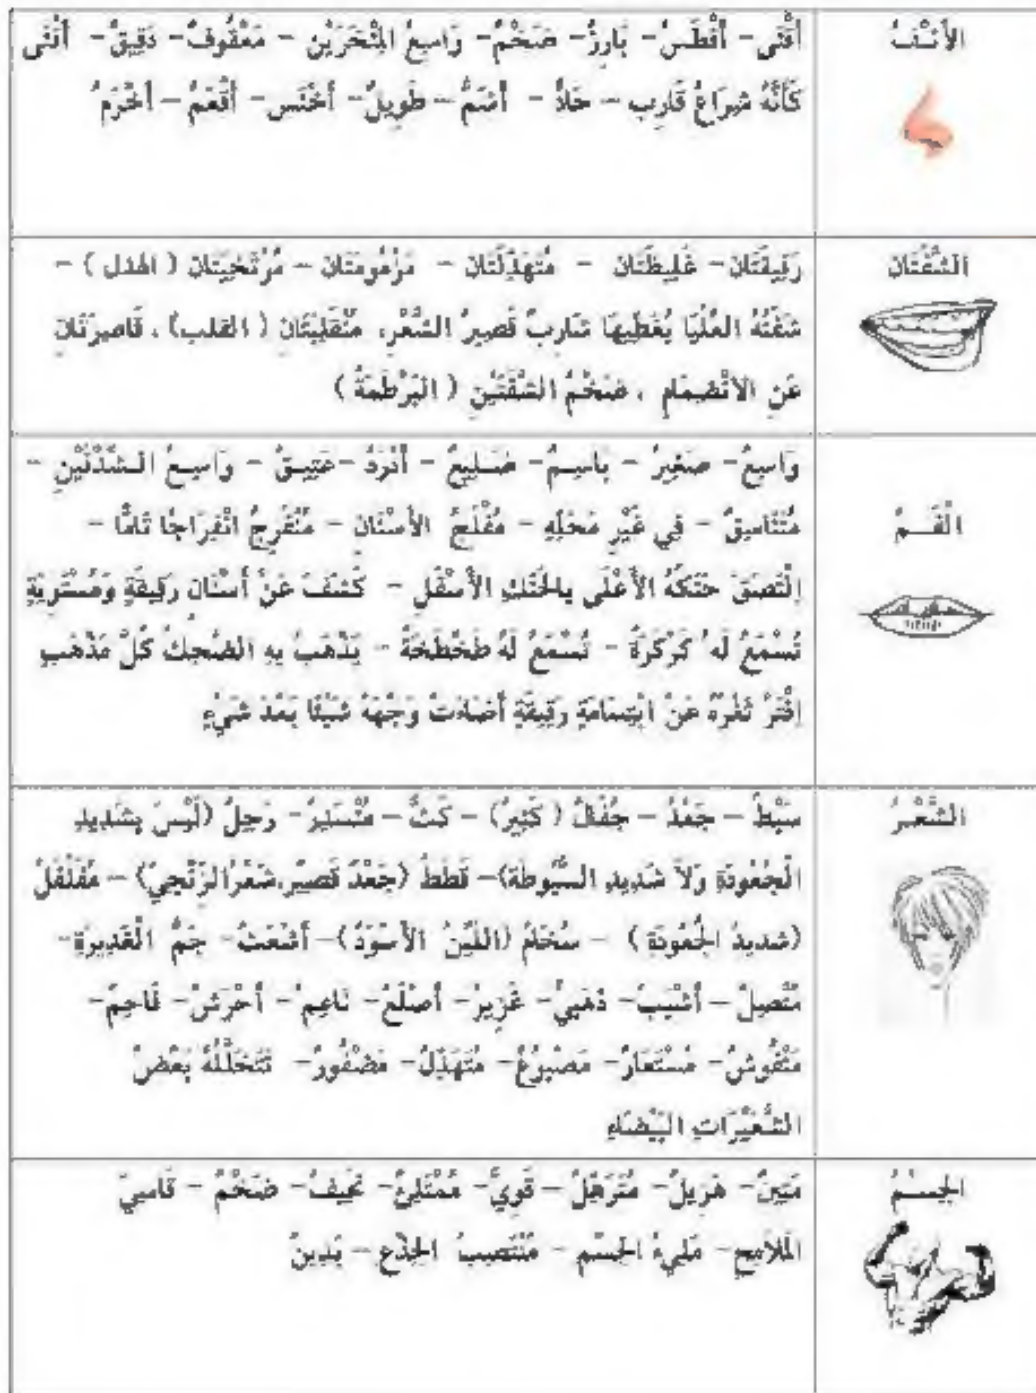 الأَنْفُ
أَقْنَى - أَفْطَسُ - بَارِزٌ - ضَخْمٌ - وَاسِعُ الْمِنْخَرَيْنِ - مَعْقُوفٌ - دَقِيقٌ - أَقْنَى
كَأَنَّهُ شِرَاعُ قَارِبٍ - حَادٌّ - أَشَمُّ - طَوِيلٌ - أَخْنَس - أَقْعَمُ - أَخْرَمُ
الشَّفَتَان
رَقِيقَتَان - غَلِيظَتَان - مُتَهَدِّلَتَان - مَزْمُومَتَان - مُرْتَخِيَتَان ( الهدل ) -
شَفَتُهُ العُلْيَا يُغَطِّيهَا شَارِبٌ قَصِيرُ الشَّعْرِ، مُنْقَلِبَتَان ( القلب) ، قَاصِرَتَان
عَنِ الانْضِمَامِ ، ضَخْمُ الشَّفَتَيْنِ ( البَرْطَمَةُ )
الْفَــمُ
وَاسِعٌ - صَغِيرٌ - بَاسِمٌ - ضَلِيعٌ - أَدْرَدُ - عَتِيقٌ - وَاسِعُ الشِّدْقَيْنِ -
مُتَنَاسِقٌ - فِي غَيْرِ مَحَلِّهِ - مُفْلَجُ الأَسْنَان - مُنْفَرِجٌ انْفِرَاجًا تَامًّا -
اِلْتَصَقَ حَنَكُهُ الأَعْلَى بِالحَنَكِ الأَسْفَلِ - كَشَفَ عَنْ أَسْنَانٍ رَقِيقَةٍ وَمُسْتَوِيَةٍ
تُسْمَعُ لَهُ كَرْكَرَةٌ - تُسْمَعُ لَهُ طَخْطَخَةٌ - يَذْهَبُ بِهِ الضَّحِكُ كُلَّ مَذْهَبٍ
اِفْتَرَّ ثَغْرُهُ عَنْ ابْتِسَامَةٍ رَقِيقَةٍ أَضَاءَتْ وَجْهَهُ شَيْئًا بَعْدَ شَيْءٍ
الشَّعْــرُ
سَبْطٌ - جَعْدٌ - جُفَالٌ ( كَثِيرٌ) - كَثٌّ - مُسْتَدِيرٌ - رَجِلٌ (لَيْسَ بِشَدِيدِ
الْجُعُودَةِ وَلاَ شَدِيدِ السُّبُوطَةِ) - قَطَطٌ (جَعْدٌ قَصِيرٌ،شَعْرُالزِّنْجِيِّ) - مُفَلْفَلٌ
(شديدُ الجُعُودَةِ ) - سُخَامٌ (اللَّيِّنُ الأَسْوَدُ) - أَشْعَثُ - جَمُّ الْغَدِيرَةِ -
مُتَّصِلٌ - أَشْيَبُ - ذَهَبِيٌّ - غَزِيرٌ - أَصْلَعُ - نَاعِمٌ - أَحْرَشُ - فَاحِمٌ -
مَنْفُوشٌ - مُسْتَعَارٌ - مَصْبُوغٌ - مُتَهَدِّلٌ - مَضْفُورٌ - تَتَخَلَّلُهُ بَعْضُ
الشُّعَيْرَاتِ البَيْضَاءِ
الجِسْــمُ
مَتِينٌ - هَزِيلٌ - مُتَرَهِّلٌ - قَوِيٌّ - مُمْتَلِئٌ - نَحِيفٌ - ضَخْمٌ - قَاسِيَ
المَلاَمِحِ - مَلِيءُ الجِسْمِ - مُنْتَصِبُ الجِذْعِ - بَدِينٌ